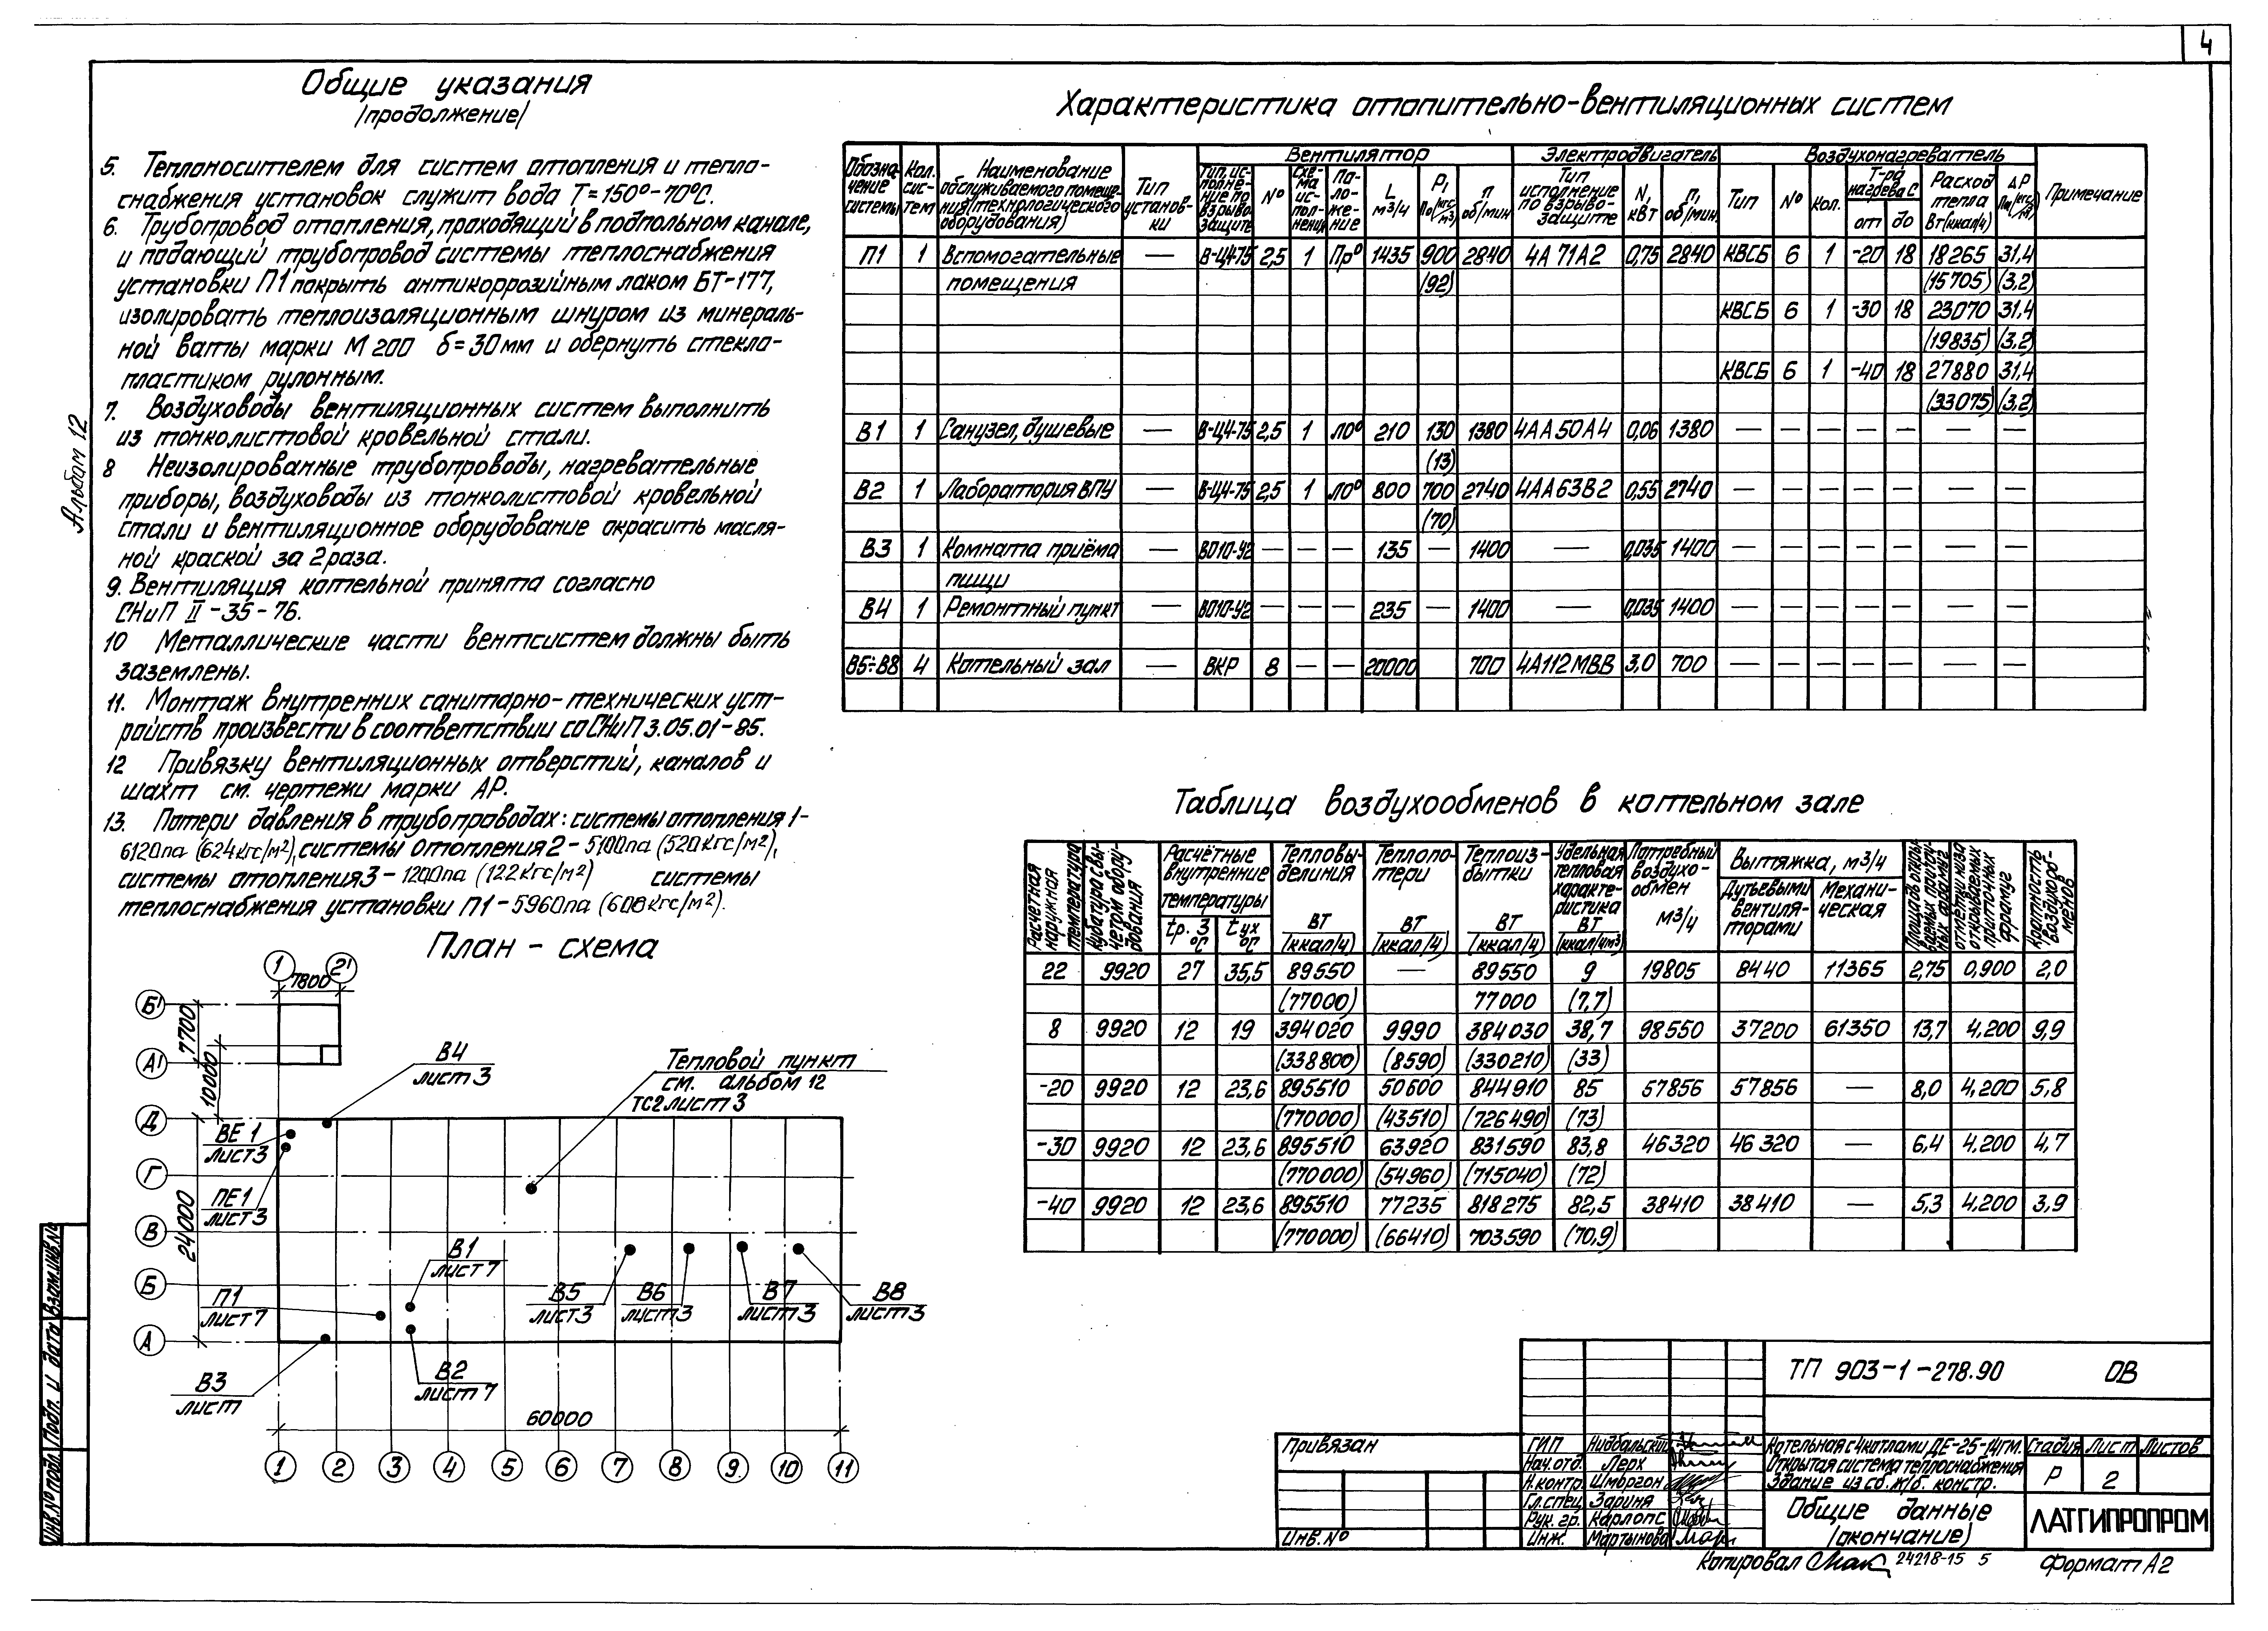 4
Общие указания
/продолжение/
5. Теплоносителем для систем отопления и тепло-
снабжения установок служит вода Т=150°-70°С.
6. Трубопровод отопления, проходящий в подпольном канале,
и подающий трубопровод системы теплоснабжения
установки П1 покрыть антикоррозийным лаком БТ-177,
изолировать теплоизоляционным шнуром из минераль-
ной ваты марки М200 б=30мм и обернуть стекло-
пластиком рулонным.
7. Воздуховоды вентиляционных систем выполнить
из тонколистовой кровельной стали.
8 Неизолированные трубопроводы, нагревательные
приборы, воздуховоды из тонколистовой кровельной
стали и вентиляционное оборудование окрасить масля-
ной краской за 2 раза.
9. Вентиляция котельной принята согласно
СНиП II-35-76.
10 Металлические части вентсистем должны быть
заземлены.
11. Монтаж внутренних санитарно-технических уст-
ройств произвести в соответствии со СНиП 3.05.01-85.
12 Привязку вентиляционных отверстий, каналов и
шахт см. чертежи марки АР.
13. Потери давления в трубопроводах: системы отопления 1-
6120па (624кгс/м2), системы отопления 2- 5100па (520кгс/м2),
системы отопления 3- 1200па (122кгс/м2) системы
теплоснабжения установки П1-5960па (608кгс/м2).
Альбом 12
Характеристика отопительно-вентиляционных систем
Обозна-чение системы Кол. сис-тем Наименование обслуживаемого помеще-ния (технологического оборудования) Тип установ-ки Вентилятор Электродвигатель Воздухонагреватель Примечание
Тип, ис-полне-ние по взрыво-защите № Схе-ма ис-пол-нения По-ло-же-ние L м3/ч Р, Па (кгс/м2) п об/мин Тип исполнение по взрыво-защите N, кВт п, об/мин Тип № Кол. Т-ра нагрева С от до Расход тепла Вт(ккал/ч) ΔР Па (кгс/м2)
П1 1 Вспомогательные — В-Ц4-75 2,5 1 Пр0 1435 900 2840 4А71А2 0,75 2840 КВСБ 6 1 -20 18 18265 31,4
помещения (92) (15705) (3,2)
КВСБ 6 1 -30 18 23070 31,4
(19835) (3.2)
КВСБ 6 1 -40 18 27880 31,4
(33075) (3,2)
В1 1 Санузел, душевые — В-Ц4-75 2,5 1 Л0° 210 130 1380 4АА50А4 0,06 1380 — — — — — — —
(13)
В2 1 Лаборатория ВПУ — В-Ц4-75 2,5 1 Л0° 800 700 2740 4АА63В2 0,55 2740 — — — — — — —
(70)
В3 1 Комната приёма — ВО10-У2 — — — 135 — 1400 — 0,035 1400 — — — — — — —
пищи
В4 1 Ремонтный пункт — ВО10-У2 — — — 235 — 1400 — 0,035 1400 — — — — — — —
В5÷В8 4 Котельный зал — ВКР 8 — — 20000 700 4А112МВВ 3,0 700 — — — — — — —
Таблица воздухообменов в котельном зале
Расчётная наружная температура Кубатура с вы-четом обору-дования Расчётные внутренние температуры Тепловы-деления Теплопо-тери Теплоиз-бытки Удельная тепловая характе-ристика Потребный воздухо-обмен м3/ч Вытяжка, м3/ч Отметка низа открываемых приточных фрамуг Кратность воздухооб-менов
tр. з °С tух °С ВТ (ккал/ч) ВТ (ккал/ч) ВТ (ккал/ч) ВТ (ккал/чм3) Дутьевыми вентиля-торами Механи-ческая
22 9920 27 35,5 89550 — 89550 9 19805 8440 11365 2,75 0,900 2,0
(77000) 77000 (7,7)
8 9920 12 19 394020 9990 384030 38,7 98550 37200 61350 13,7 4,200 9,9
(338800) (8590) (330210) (33)
-20 9920 12 23,6 895510 50600 844910 85 57856 57856 — 8,0 4,200 5,8
(770000) (43510) (726490) (73)
-30 9920 12 23,6 895510 63920 831590 83,8 46320 46320 — 6,4 4.200 4,7
(770000) (54960) (715040) (72)
-40 9920 12 23,6 895510 77235 818275 82,5 38410 38410 — 5,3 4,200 3,9
(770000) (66410) 703590 (70,9)
План - схема
1 2'
7800
Б'
7700
А'
10000
В4
лист 3
Тепловой пункт
см. альбом 12
ТС2 лист 3
Д
ВЕ 1
лист 3
Г
ПЕ1
лист 3
24000
В
В1
лист 7
Б
П1
лист 7
В5
лист 3
В6
лист 3
В7
лист 3
В8
лист 3
А
В2
лист 7
В3
лист
60000
1 2 3 4 5 6 7 8 9 10 11
Инв.№подл. Подп. и дата Взам.инв.№
Привязан
Инв. №
ТП 903-1-278.90 ОВ
ГИП Нидбальский
Нач. отд. Лерх
Н.контр. Шморгон
Гл.спец Зариня
Рук. гр. Карлопс
Инж. Мартынова
Котельная с 4 котлами ДЕ-25-14ГМ.
Открытая система теплоснабжения
Здание из сб. ж/б. констр.
Стадия Лист Листов
Р 2
Общие данные
(окончание)
ЛАТГИПРОПРОМ
Копировал 24218-15 5 Формат А2